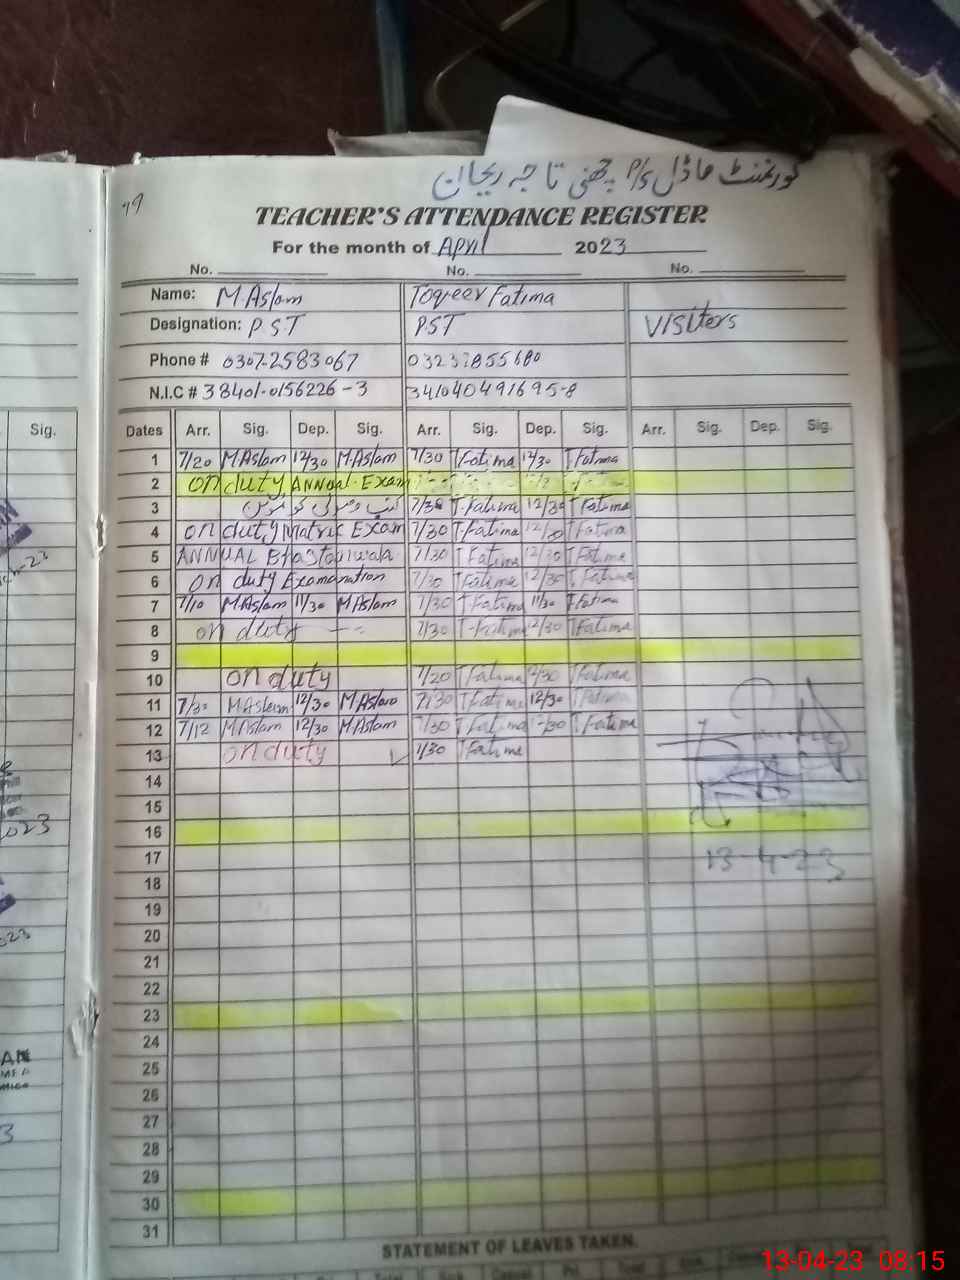 گورنمنٹ ماڈل P/S چھنی تاجہ ریحان
49
TEACHER'S ATTENDANCE REGISTER
For the month of April 2023
No. No. No.
Name: M.Aslam Toqeer Fatima
Designation: PST PST Visiters
Phone # 0307-2583067 03237855680
N.I.C # 38401-0156226-3 341040491695-8
Sig. Dates Arr. Sig. Dep. Sig. Arr. Sig. Dep. Sig. Arr. Sig. Dep. Sig.
1 7/20 M.Aslam 12/30 M.Aslam 7/30 T.Fatima 12/30 T.Fatima
2 on duty Annual Exam
3 7/30 T.Fatima 12/30 T.Fatima
4 on duty Matric Exam 7/30 T.Fatima 12/30 T.Fatima
5 ANNUAL 7/30 T.Fatima 12/30 T.Fatima
6 on duty Examanation 7/30 T.Fatima 12/30 T.Fatima
7 7/10 M.Aslam 11/30 M.Aslam 7/30 T.Fatima 11/30 T.Fatima
8 on duty 7/30 T.Fatima 12/30 T.Fatima
9
10 on duty 7/20 T.Fatima 12/30 T.Fatima
11 7/30 M.Aslam 12/30 M.Aslam 7/30 T.Fatima 12/30 T.Fatima
12 7/12 M.Aslam 12/30 M.Aslam 7/30 T.Fatima T.Fatima
13 on duty T.Fatima
14
15
16
17 13-4-23
18
19
20
21
22
23
24
25
26
27
28
29
30
31
STATEMENT OF LEAVES TAKEN.
13-04-23 08:15